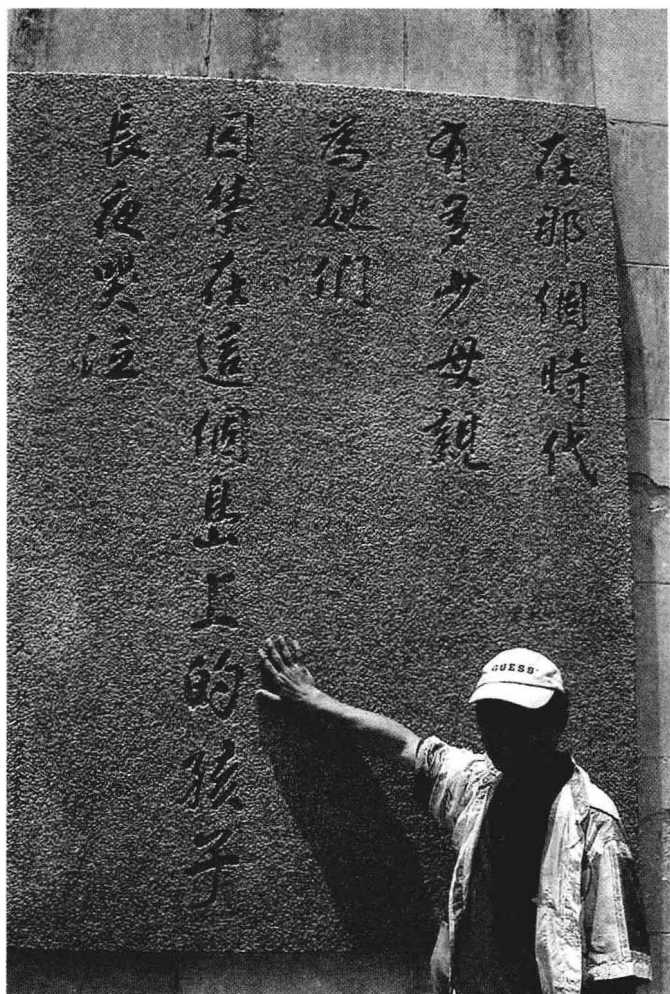 在那個時代
有多少母親
為她們
囚禁在這個島上的孩子
長夜哭泣
GUESS